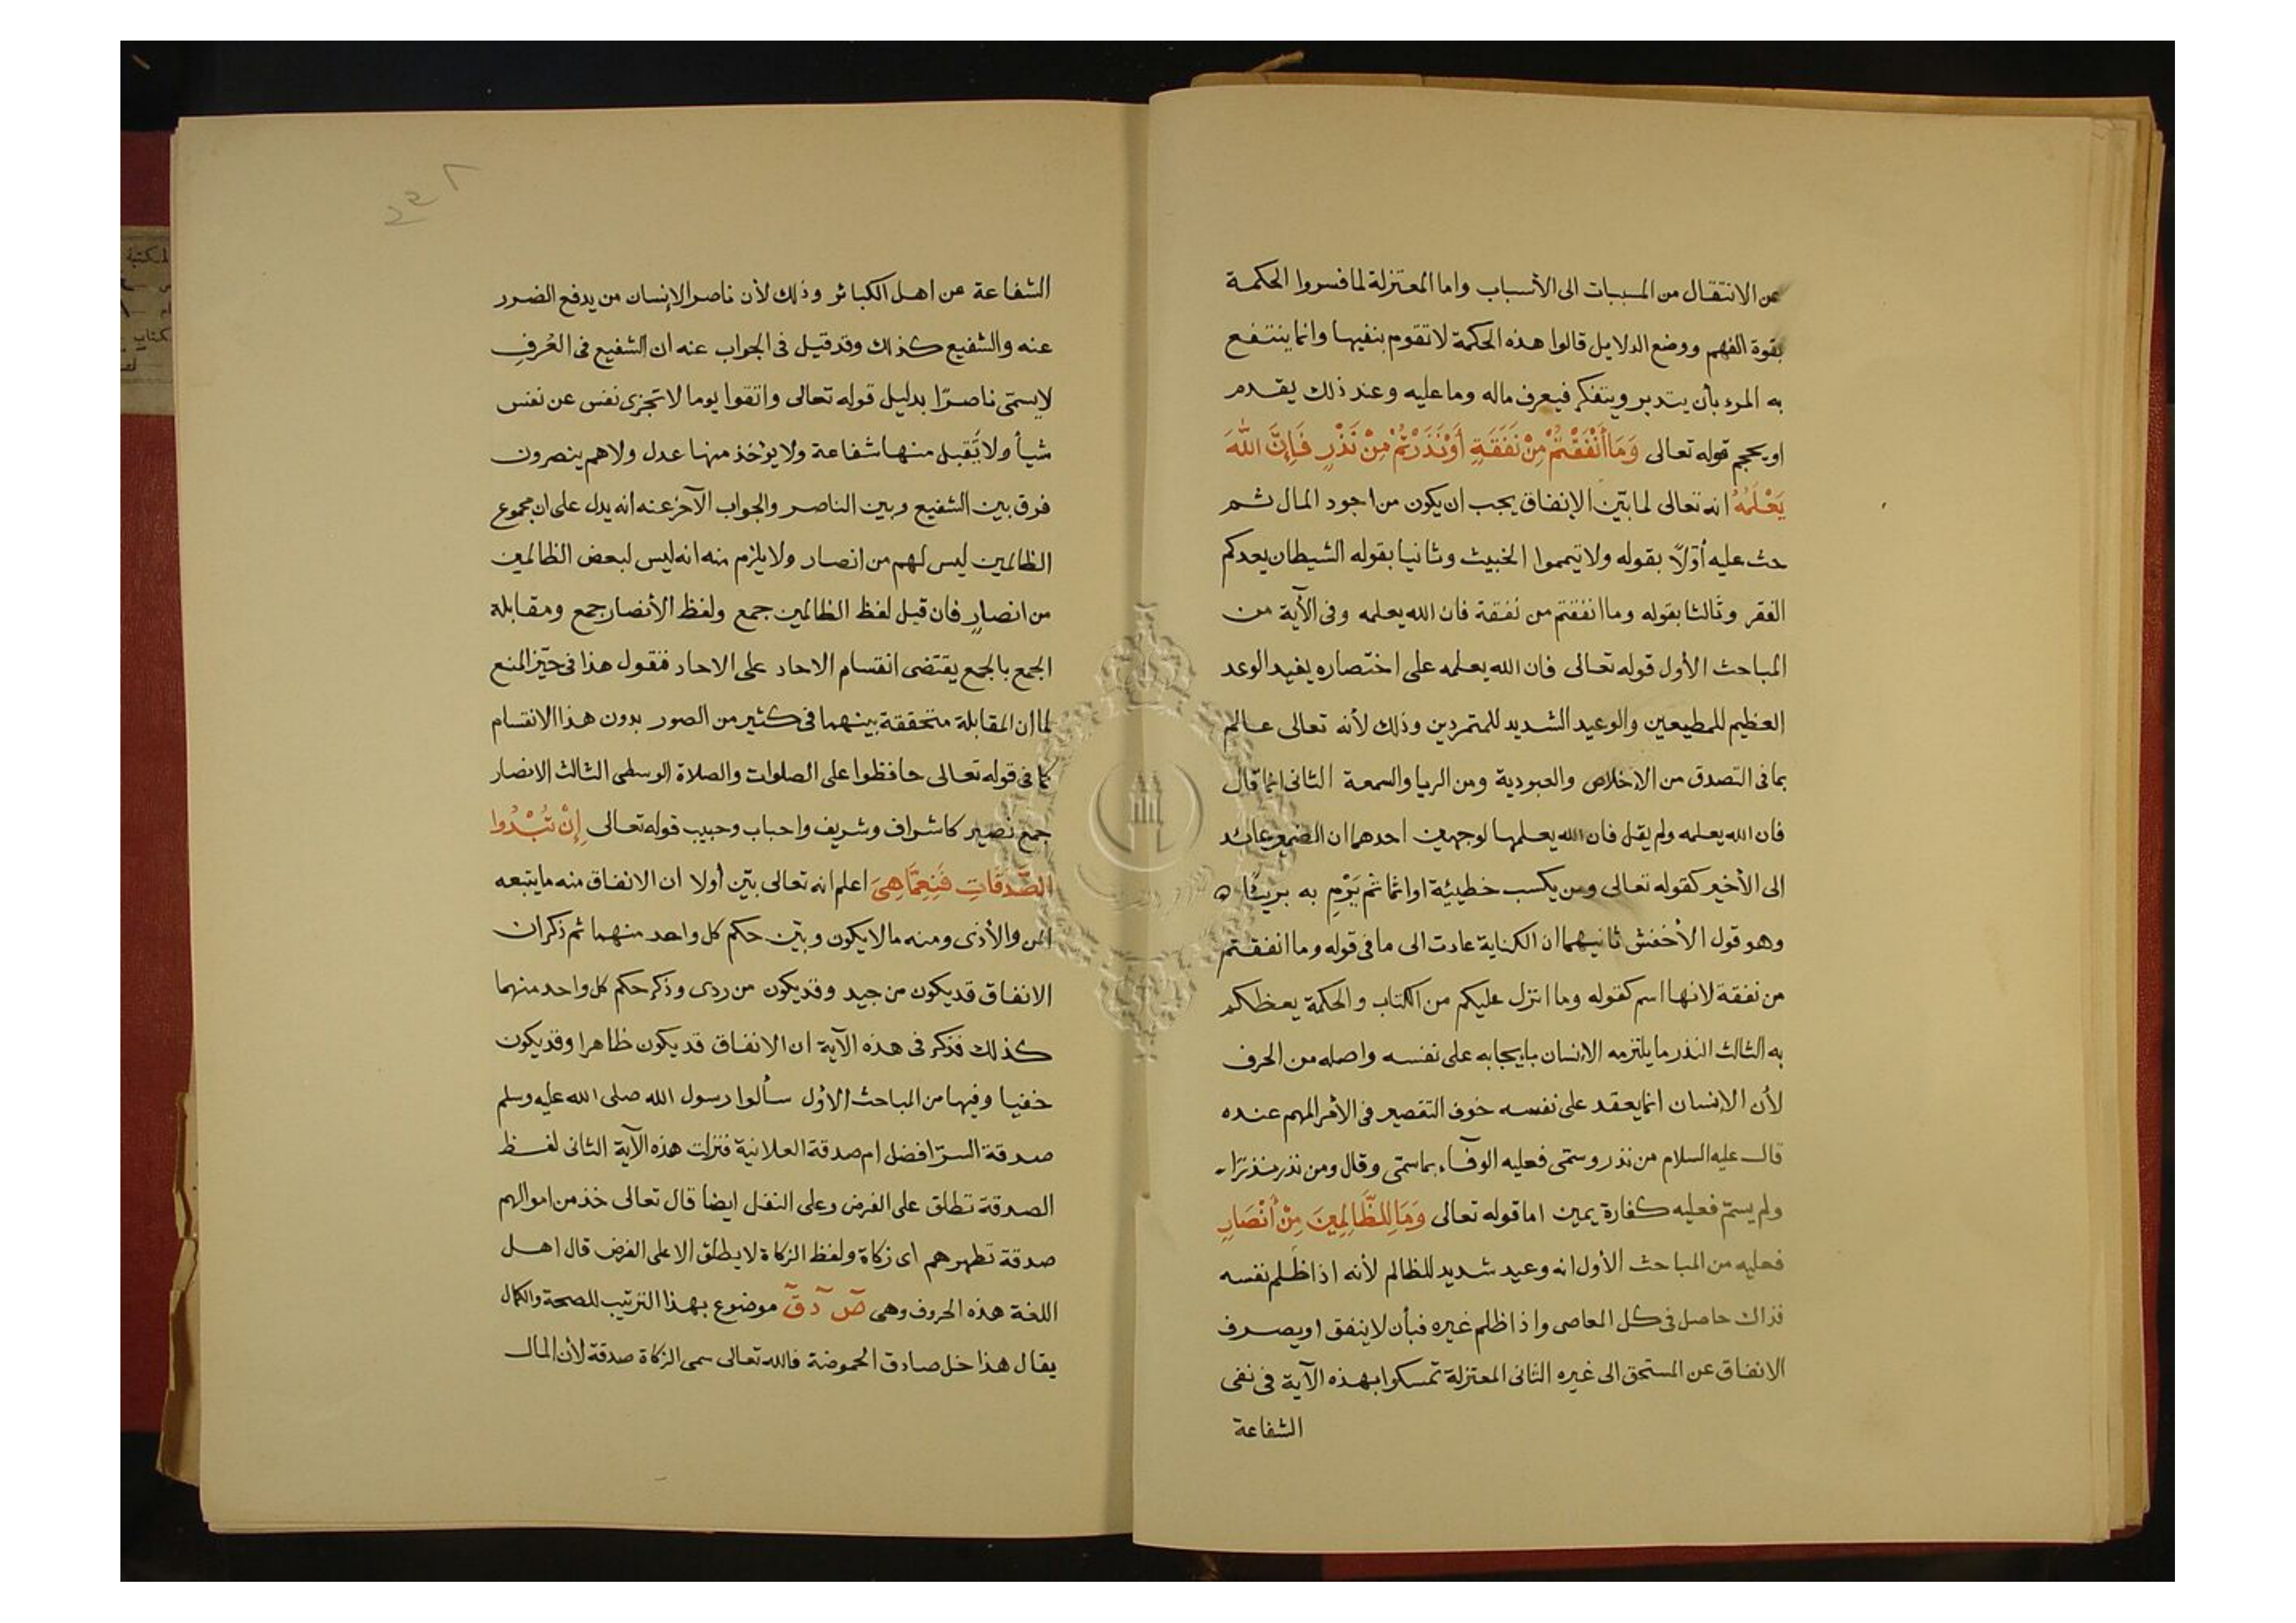 عن الانتقال من المسببات الى الأسباب واما المعتزلة لما فسروا الحكمة
بقوة الفهم ووضع الدلايل قالوا هذه الحكمة لا تقوم بنفيها وانما ينتفع
به المرء بأن يتدبر ويتفكر فيعرف ماله وما عليه وعند ذلك يقدم
او يحجم قوله تعالى وَمَا أَنْفَقْتُمْ مِنْ نَفَقَةٍ أَوْ نَذَرْتُمْ مِنْ نَذْرٍ فَإِنَّ اللَّهَ
يَعْلَمُهُ انه تعالى لما بيّن الإنفاق يجب ان يكون من اجود المال ثم
حث عليه أوّلاً بقوله ولا تيمموا الخبيث وثانيا بقوله الشيطان يعدكم
الفقر وثالثا بقوله وما انفقتم من نفقة فان الله يعلمه وفى الآية من
المباحث الأول قوله تعالى فان الله يعلمه على اختصاره يفيد الوعد
العظيم للمطيعين والوعيد الشديد للمتمردين وذلك لأنه تعالى عالم
بما فى التصدق من الإخلاص والعبودية ومن الريا والسمعة الثانى انما قال
فان الله يعلمه ولم يقل فان الله يعلمها لوجهين احدهما ان الضمير عائد
الى الأخير كقوله تعالى ومن يكسب خطيئة او اثما ثم يَرْمِ به بريئًا
وهو قول الأخفش ثانيهما ان الكناية عادت الى ما فى قوله وما انفقتم
من نفقة لانها اسم كقوله وما انزل عليكم من الكتاب والحكمة يعظكم
به الثالث النذر ما يلتزمه الانسان بايجابه على نفسه واصله من الحرف
لأن الإنسان انما يعقد على نفسه خوف التقصير فى الأمر المهم عنده
قال عليه السلام من نذر وسمّى فعليه الوفآء بما سمّى وقال ومن نذر نذرًا
ولم يسمّ فعليه كفارة يمين اما قوله تعالى وَمَا لِلظَّالِمِينَ مِنْ أَنْصَارٍ
فعليه من المباحث الأول انه وعيد شديد للظالم لأنه اذا ظلم نفسه
فذاك حاصل فى كل المعاصى واذا ظلم غيره فبأن لا ينفق او يصرف
الانفاق عن المستحق الى غيره الثانى المعتزلة تمسكوا بهذه الآية فى نفى
الشفاعة
الشفاعة عن اهل الكبائر وذلك لأن ناصر الإنسان من يدفع الضرر
عنه والشفيع كذلك وقد قيل فى الجواب عنه ان الشفيع فى العُرفِ
لا يسمّى ناصرًا بدليل قوله تعالى واتقوا يوما لا تجزى نفس عن نفس
شيأ ولا تُقبل منها شفاعة ولا يؤخذ منها عدل ولا هم ينصرون
فرق بين الشفيع وبين الناصر والجواب الآخر عنه انه يدل على ان مجموع
الظالمين ليس لهم من انصار ولا يلزم منه انه ليس لبعض الظالمين
من انصارٍ فان قيل لفظ الظالمين جمع ولفظ الأنصار جمع ومقابلة
الجمع بالجمع يقتضى انقسام الاحاد على الاحاد فنقول هذا فى حيّز المنع
لما ان المقابلة متحققة بينهما فى كثير من الصور بدون هذا الانقسام
كما فى قوله تعالى حافظوا على الصلوات والصلاة الوسطى الثالث الانصار
جمع نصير كاشراف وشريف واحباب وحبيب قوله تعالى إِنْ تُبْدُوا
الصَّدَقَاتِ فَنِعِمَّا هِىَ اعلم انه تعالى بيّن أولا ان الانفاق منه ما يتبعه
المن والأذى ومنه ما لا يكون وبيّن حكم كل واحد منهما ثم ذكر ان
الانفاق قد يكون من جيد وقد يكون من ردى وذكر حكم كل واحد منهما
كذلك فذكر فى هذه الآية ان الانفاق قد يكون ظاهرا وقد يكون
خفيا وفيها من المباحث الأول سألوا رسول الله صلى الله عليه وسلم
صدقة السرّ افضل ام صدقة العلانية فنزلت هذه الآية الثانى لفظ
الصدقة تطلق على الفرض وعلى النفل ايضا قال تعالى خذ من اموالهم
صدقة تطهرهم اى زكاة ولفظ الزكاة لا يطلق الا على الفرض قال اهل
اللغة هذه الحروف وهى صٓ دٓ قٓ موضوع بهذا الترتيب للصحة والكمال
يقال هذا خل صادق الحموضة فالله تعالى سمى الزكاة صدقة لأن المال